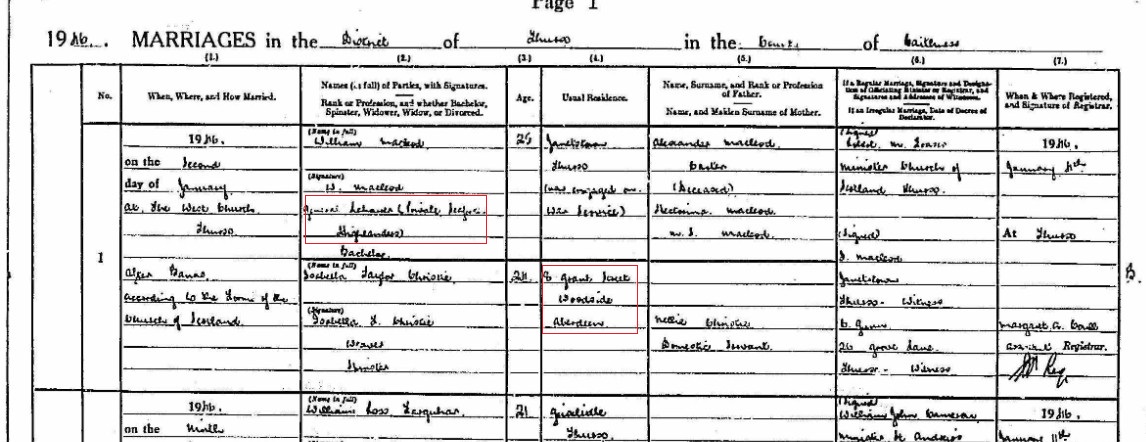 Page 1
1946. MARRIAGES in the District of Thurso in the County of Caithness
(1.) (2.) (3.) (4.) (5.) (6.) (7.)
No.
When, Where, and How Married.
Names (in full) of Parties, with Signatures.
Rank or Profession, and whether Bachelor,
Spinster, Widower, Widow, or Divorced.
Age.
Usual Residence.
Name, Surname, and Rank or Profession
of Father.
Name, and Maiden Surname of Mother.
If a Regular Marriage, Signature and Designa-
tion of Officiating Minister or Registrar, and
Signatures and Addresses of Witnesses.
If an Irregular Marriage, Date of Decree of
Declarator.
When & Where Registered,
and Signature of Registrar.
1
1946.
on the Second
day of January
At The West Church
Thurso
After Banns
According to the Forms of the
Church of Scotland.
(Name in full)
William Macleod
(Signature)
W. Macleod
General Labourer (Private
Highlanders)
Bachelor
(Name in full)
Isabella Taylor Christie
(Signature)
Isabella T. Christie
Weaver
Spinster
25
24
Janetstown
Thurso
(now engaged on
War Service)
8 Grant Street
Woodside
Aberdeen
Alexander Macleod
(Deceased)
Macleod
M.S. Macleod
Nellie Christie
Domestic Servant
(Signed)
M. Fraser
Minister Church of
Scotland Thurso.
(Signed)
Macleod
Janetstown
Thurso - Witness
Gunn
26 Grove Lane
Thurso - Witness
1946.
January 4th
At Thurso
Margaret
Assist Registrar.
B.
1946.
on the Ninth
(Name in full)
William Ross Farquhar
21
Thurso
(Signed)
William John Cameron
Minister St Andrew's
1946.
January 11th